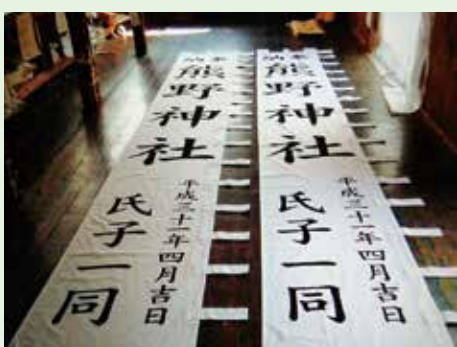 奉納
熊野神社
平成三十一年四月吉日
氏子一同
奉納
熊野神社
平成三十一年四月吉日
氏子一同